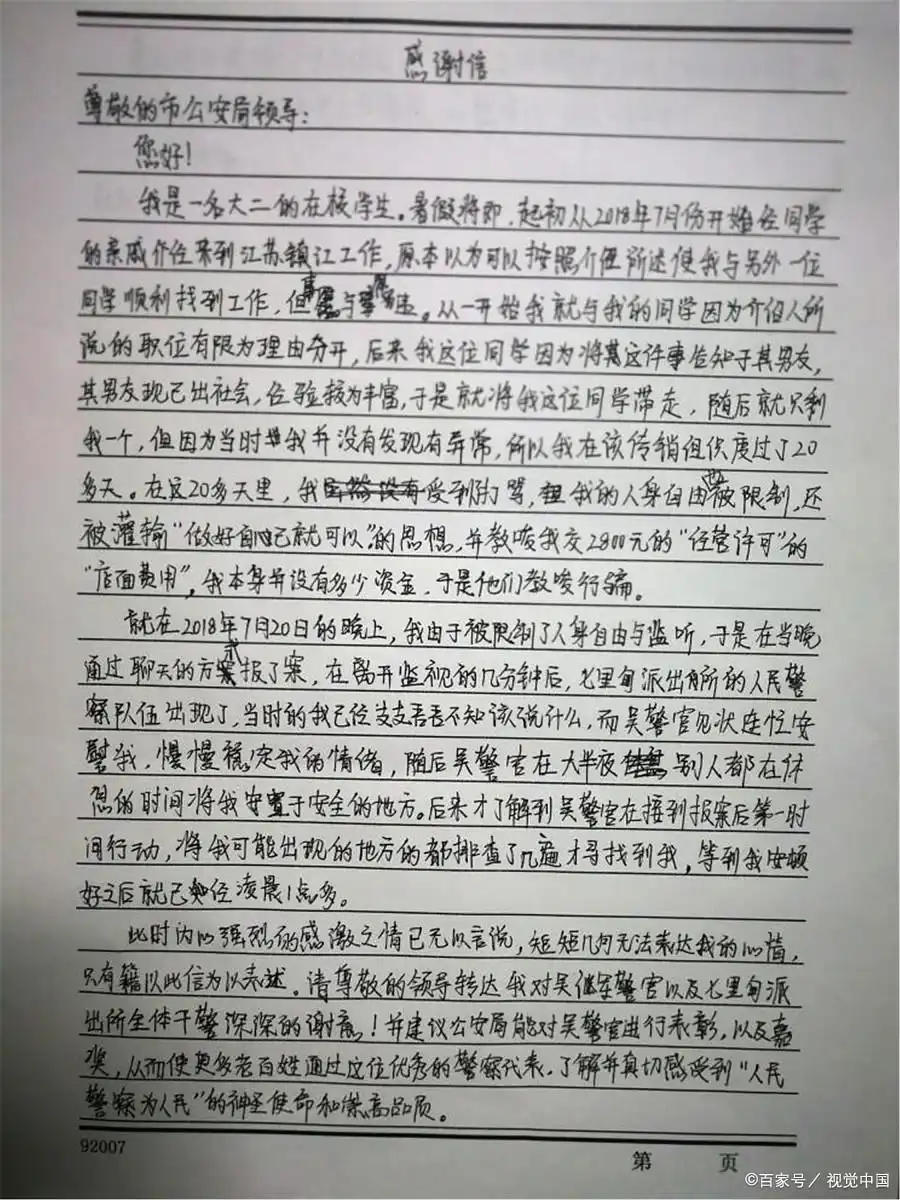 感谢信
尊敬的市公安局领导：
您好！
我是一名大二的在校学生。暑假将即，起初从2018年7月份开始经同学
的亲戚介绍来到江苏镇江工作，原本以为可以按照介绍所述使我与另外一位
同学顺利找到工作，但事与愿违。从一开始我就与我的同学因为介绍人所
说的职位有限为理由分开，后来我这位同学因为将其这件事告知于其男友，
其男友现已出社会，经验较为丰富，于是就将我这位同学带走，随后就只剩
我一个，但因为当时我并没有发现有异常，所以我在该传销组织度过了20
多天。在这20多天里，我受到打骂，但我的人身自由被限制，还
被灌输“做好自己就可以”的思想，并教唆我交2800元的“经营许可”的
“店面费用”。我本身并没有多少资金，于是他们教唆行骗。
就在2018年7月20日的晚上，我由于被限制了人身自由与监听，于是在当晚
通过聊天的方式报了案，在离开监视的几分钟后，七里甸派出所的人民警
察队伍出现了，当时的我已经支支吾吾不知该说什么，而吴警官见状连忙安
慰我，慢慢稳定我的情绪，随后吴警官在大半夜别人都在休
息的时间将我安置于安全的地方。后来才了解到吴警官在接到报案后第一时
间行动，将我可能出现的地方的都排查了几遍才寻找到我，等到我安顿
好之后就已经凌晨1点多。
此时内心强烈的感激之情已无以言说，短短几句无法表达我的心情，
只有籍以此信为以表述。请尊敬的领导转达我对吴继军警官以及七里甸派
出所全体干警深深的谢意！并建议公安局能对吴警官进行表彰，以及嘉
奖，从而使更多老百姓通过这位优秀的警察代表，了解并真切感受到“人民
警察为人民”的神圣使命和崇高品质。
92007
第 页
©百家号／视觉中国